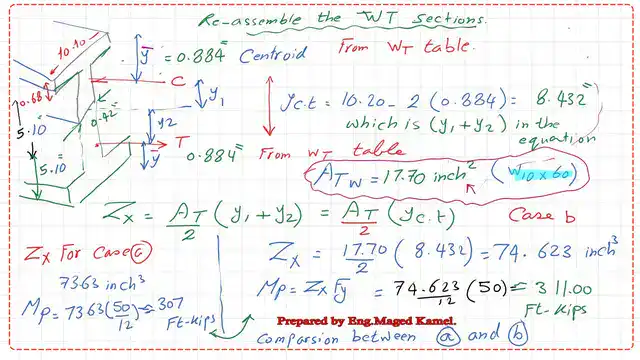 Re-assemble the WT sections.
10.10
ȳ = 0.884" Centroid
From WT table.
C
0.68
0.42
y1
y2
5.10"
5.10"
T
ȳ
0.884"
yc.t = 10.20 - 2 (0.884) = 8.432"
which is (y1+y2) in the equation
From WT table
ATW = 17.70 inch² (W10x60)
Zx = AT/2 (y1+y2) = AT/2 (yc.t) Case b
Zx For Case a
73.63 inch³
Mp = 73.63 (50/12) = 307 Ft-kips
Zx = 17.70/2 (8.432) = 74.623 inch³
Mp = Zx Fy = 74.623/12 (50) = 311.00 Ft-Kips
Prepared by Eng.Maged Kamel.
Comparsion between a and b